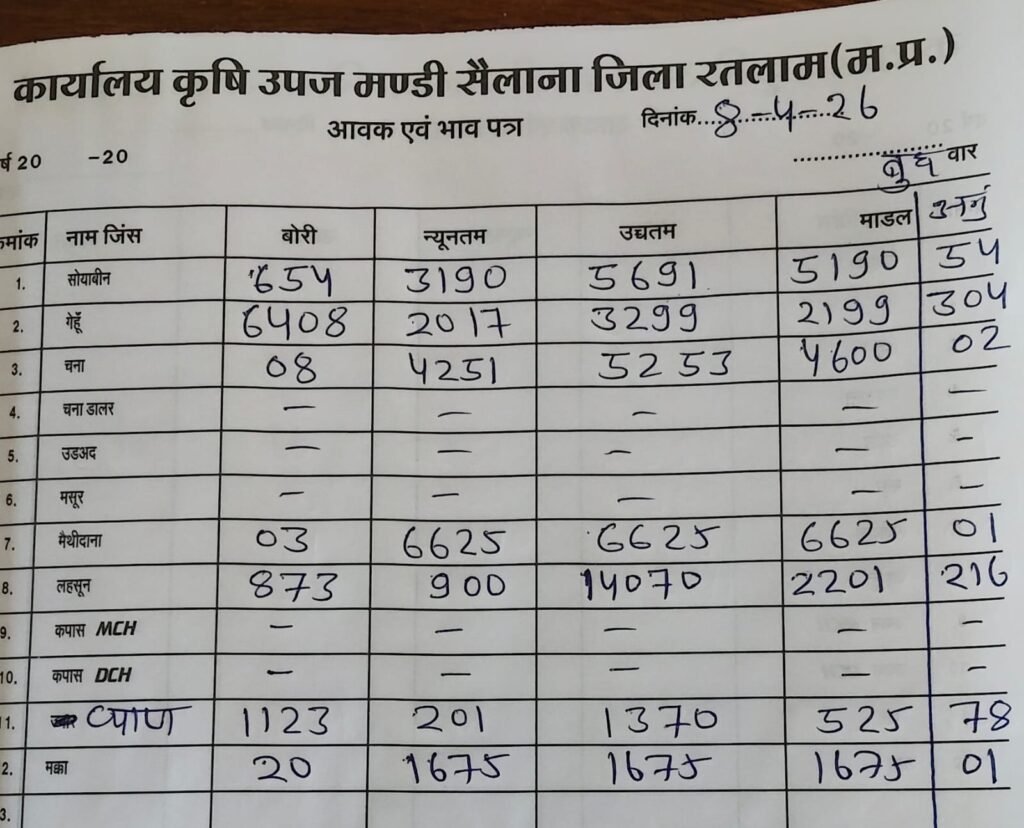 कार्यालय कृषि उपज मण्डी सैलाना जिला रतलाम (म.प्र.)
आवक एवं भाव पत्र दिनांक...8-4-26
र्ष 20 -20 बुध वार
क्रमांक नाम जिंस बोरी न्यूनतम उच्चतम माडल
1. सोयाबीन 654 3190 5691 5190 54
2. गेहूँ 6408 2017 3299 2199 304
3. चना 08 4251 5253 4600 02
4. चना डालर — — — — —
5. उडअद — — — — —
6. मसूर — — — — —
7. मैथीदाना 03 6625 6625 6625 01
8. लहसून 873 900 14070 2201 216
9. कपास MCH — — — — —
10. कपास DCH — — — — —
11. प्याज 1123 201 1370 525 78
2. मक्का 20 1675 1675 1675 01
3.